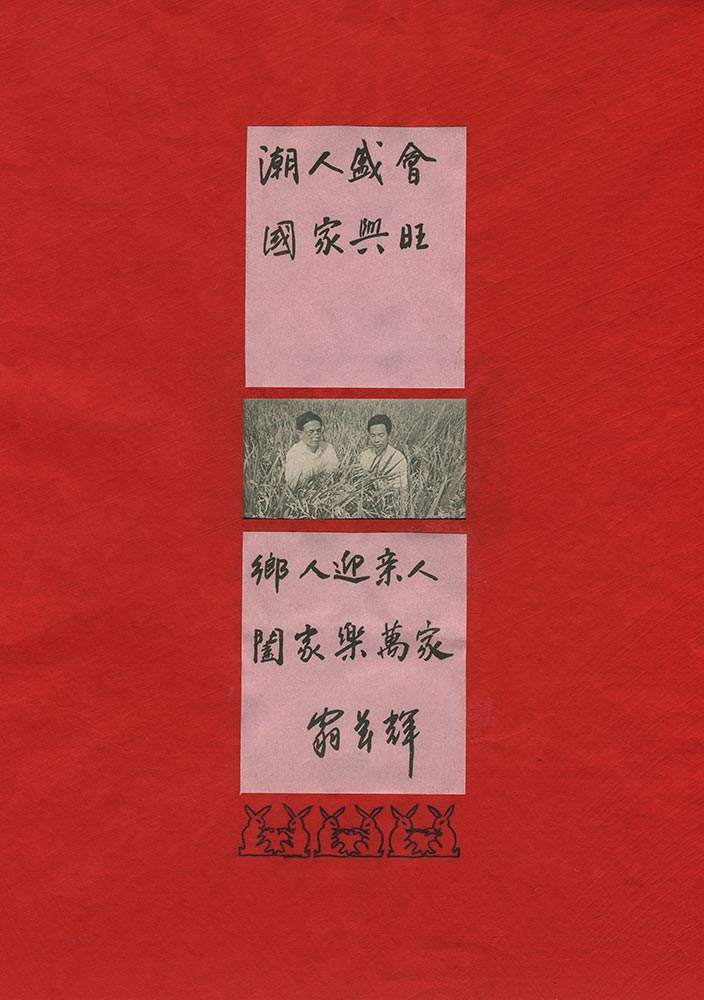 潮人盛會
國家興旺
鄉人迎亲人
闔家樂萬家
翁輝